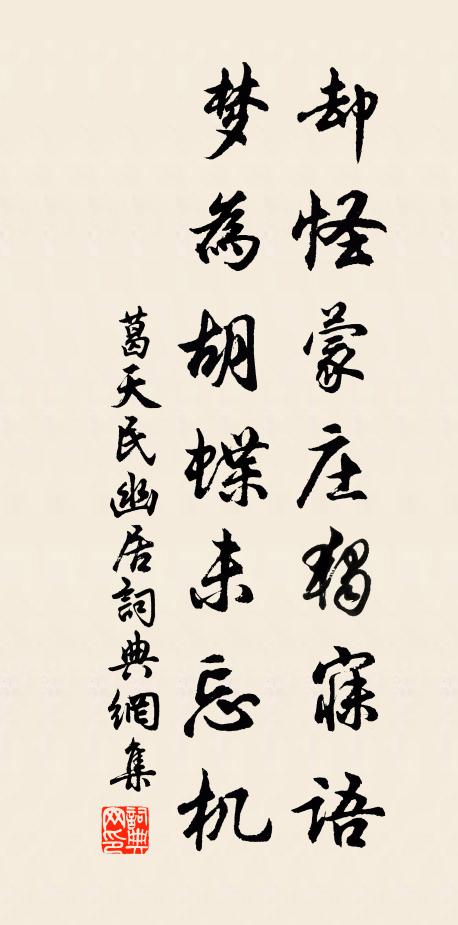 却怪蒙庄独寐语
梦為胡蝶未忘机
葛天民幽居詞典網集
詞典網印